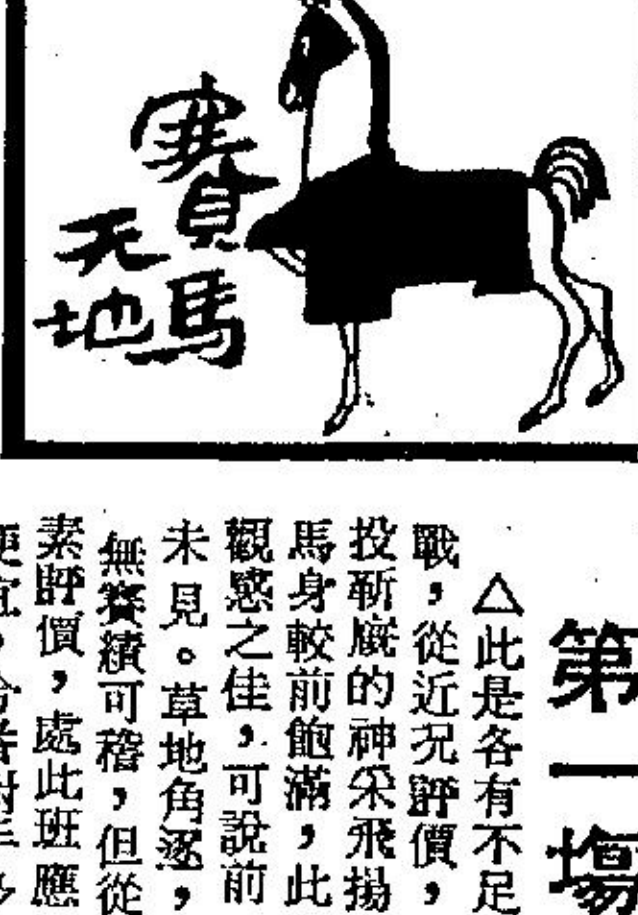 賽馬
天地
第一場
△此是各有不足
戰，從近況評價，
投新廐的神采飛揚
馬身較前飽滿，此
觀感之佳，可說前
未見。草地角逐，
無賽績可稽，但從
素評價，處此班應
便宜，